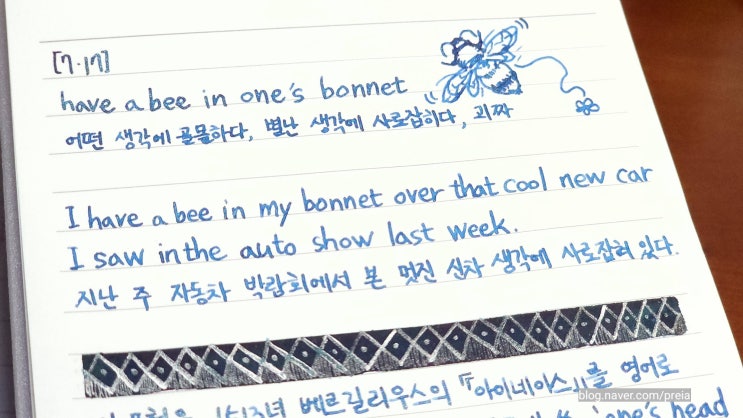 [7.17]
have a bee in one's bonnet
어떤 생각에 골몰하다, 별난 생각에 사로잡히다, 괴짜
I have a bee in my bonnet over that cool new car
I saw in the auto show last week.
지난 주 자동차 박람회에서 본 멋진 신차 생각에 사로잡혀 있다.
1513년 베르길리우스의 『아이네이스』를 영어로
one's head
blog.naver.com/preia